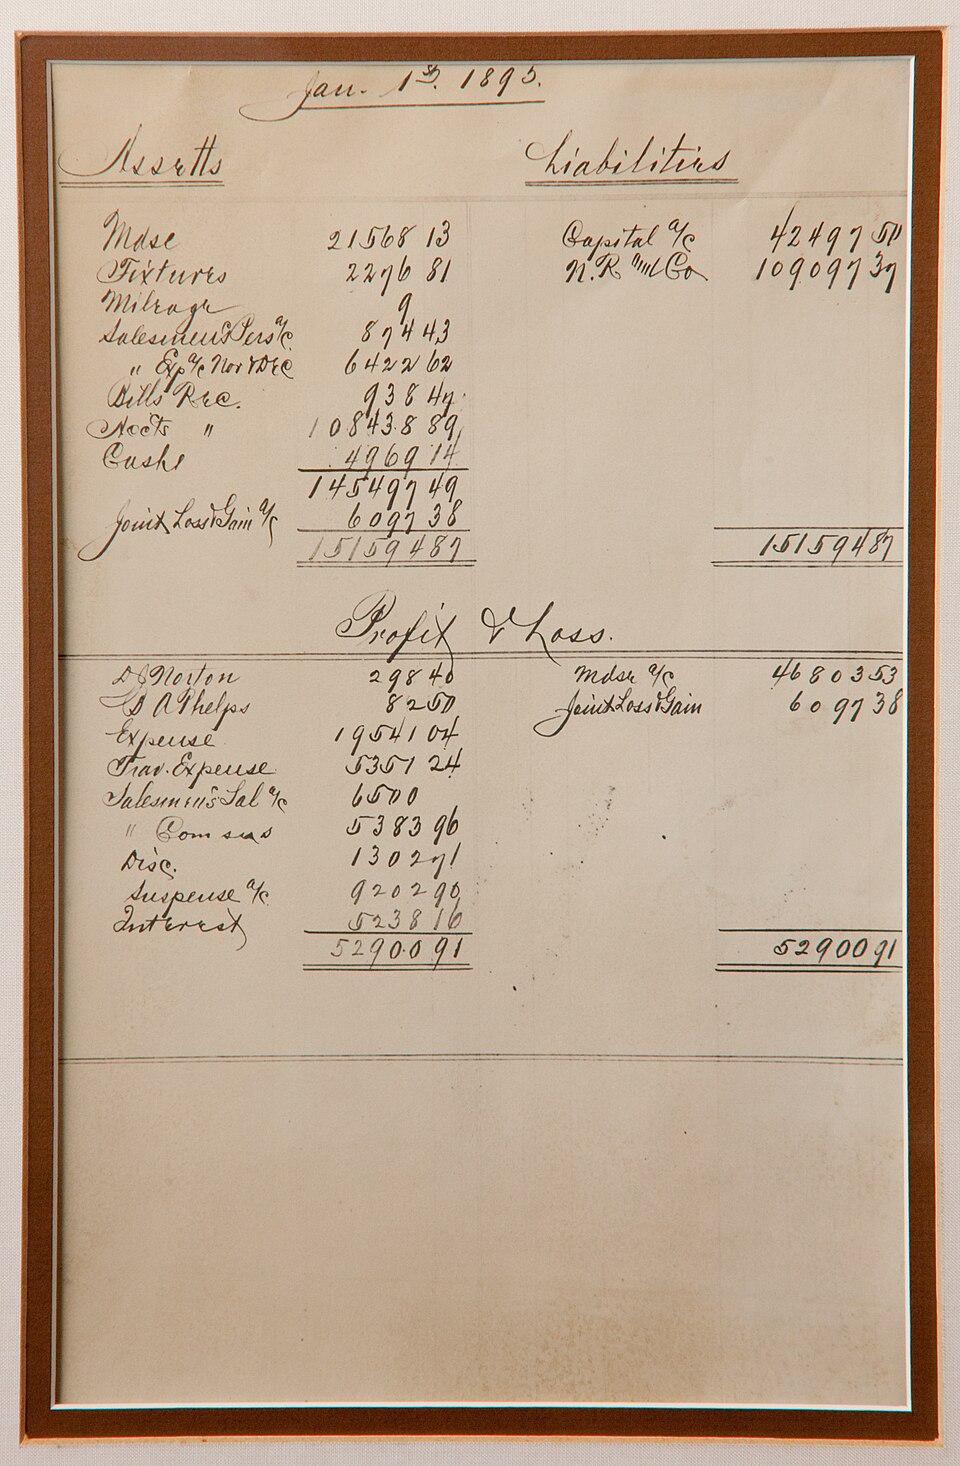 Jan. 1st. 1895.
Assetts Liabilities
Mdse 21568 13 Capital a/c 42497 50
Fixtures 2276 81 N.R Co 109097 37
Mileage 9
Salesmen's Pers a/c 874 43
" Exp a/c Nov & Dec 6422 62
Bills Rec. 938 47
Accts " 108438 89
Cash 4969 14
145497 49
Joint Loss & Gain a/c 6097 38
151594 87 151594 87
Profit & Loss.
D J Norton 298 40 Mdse a/c 46803 53
D A Phelps 82 50 Joint Loss & Gain 6097 38
Expense 19541 04
Trav. Expense 5351 24
Salesmen's Sal a/c 6500
" Comssns 5383 96
Disc. 1302 71
Suspense a/c 9202 90
Interest 5238 16
52900 91 52900 91